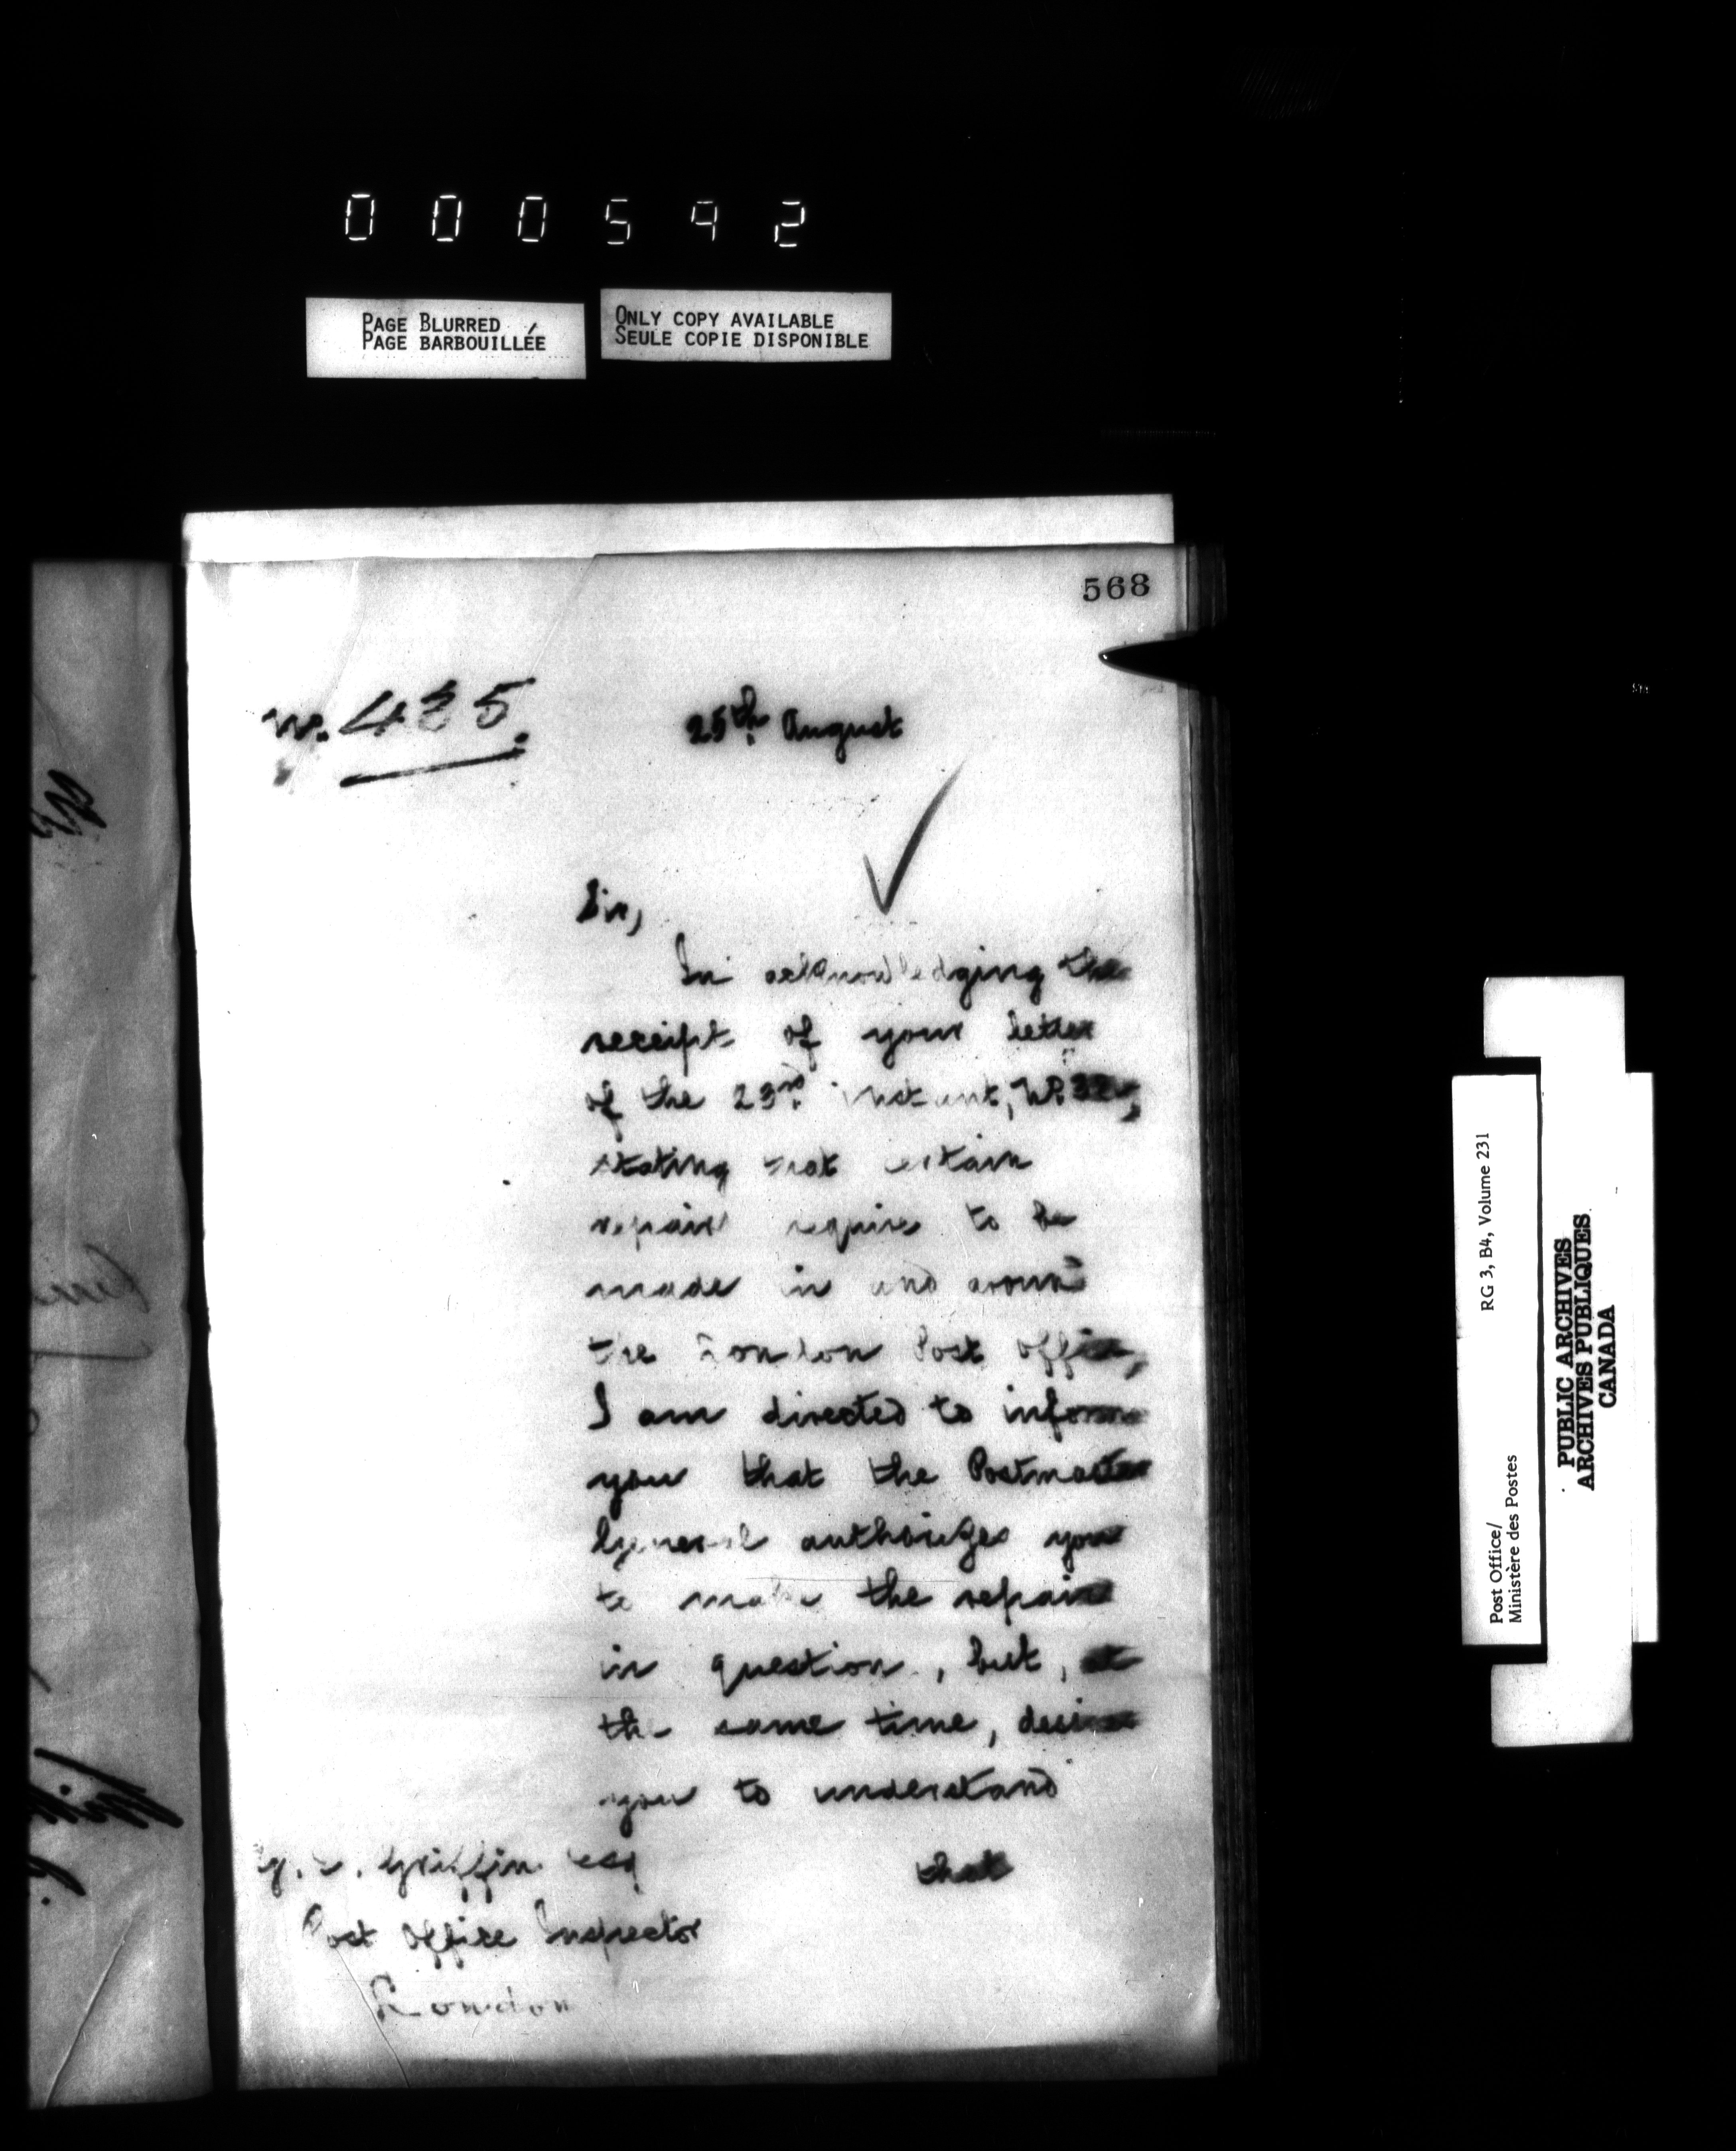 000592
PAGE BLURRED
PAGE BARBOUILLÉE
ONLY COPY AVAILABLE
SEULE COPIE DISPONIBLE
568
No. 435.
25th August
Sir,
In acknowledging the
receipt of your letter
of the 23rd instant, No.
stating that certain
repairs require to be
made in and around
the London Post Office,
I am directed to inform
you that the Postmaster
General authorizes you
to make the repairs
in question, but, at
the same time, desires
you to understand
that
Griffin Esq
Post Office Inspector
London
Post Office/
Ministère des Postes
RG 3, B4, Volume 231
PUBLIC ARCHIVES
ARCHIVES PUBLIQUES
CANADA